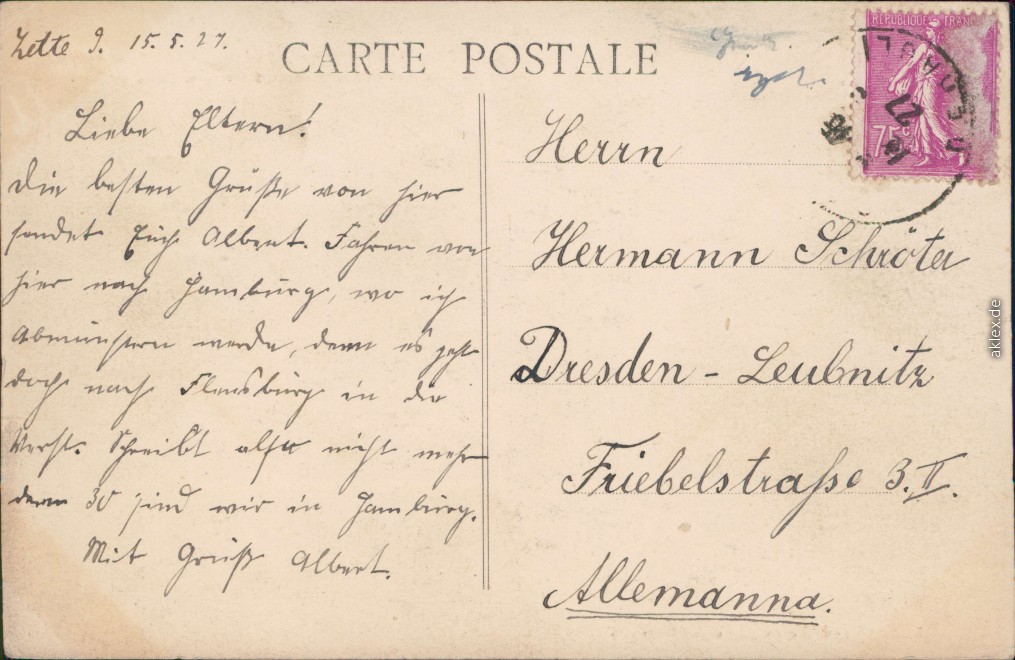 Zette 9. 15.5.27.
CARTE POSTALE
Liebe Eltern!
Die besten Grüße von hier
sendet Euch Albert. Fahren von
hier nach Hamburg, wo ich
Abmünstern werde, denn es geht
doch nach Flensburg in die
Werft. Schreibt also nicht mehr
denn 30 sind wir in Hamburg.
Mit Gruß Albert.
REPUBLIQUE FRANC
75c
27
Herrn
Hermann Schröter
Dresden - Leubnitz
Friebelstraße 3.II.
Allemanna.
aklex.de